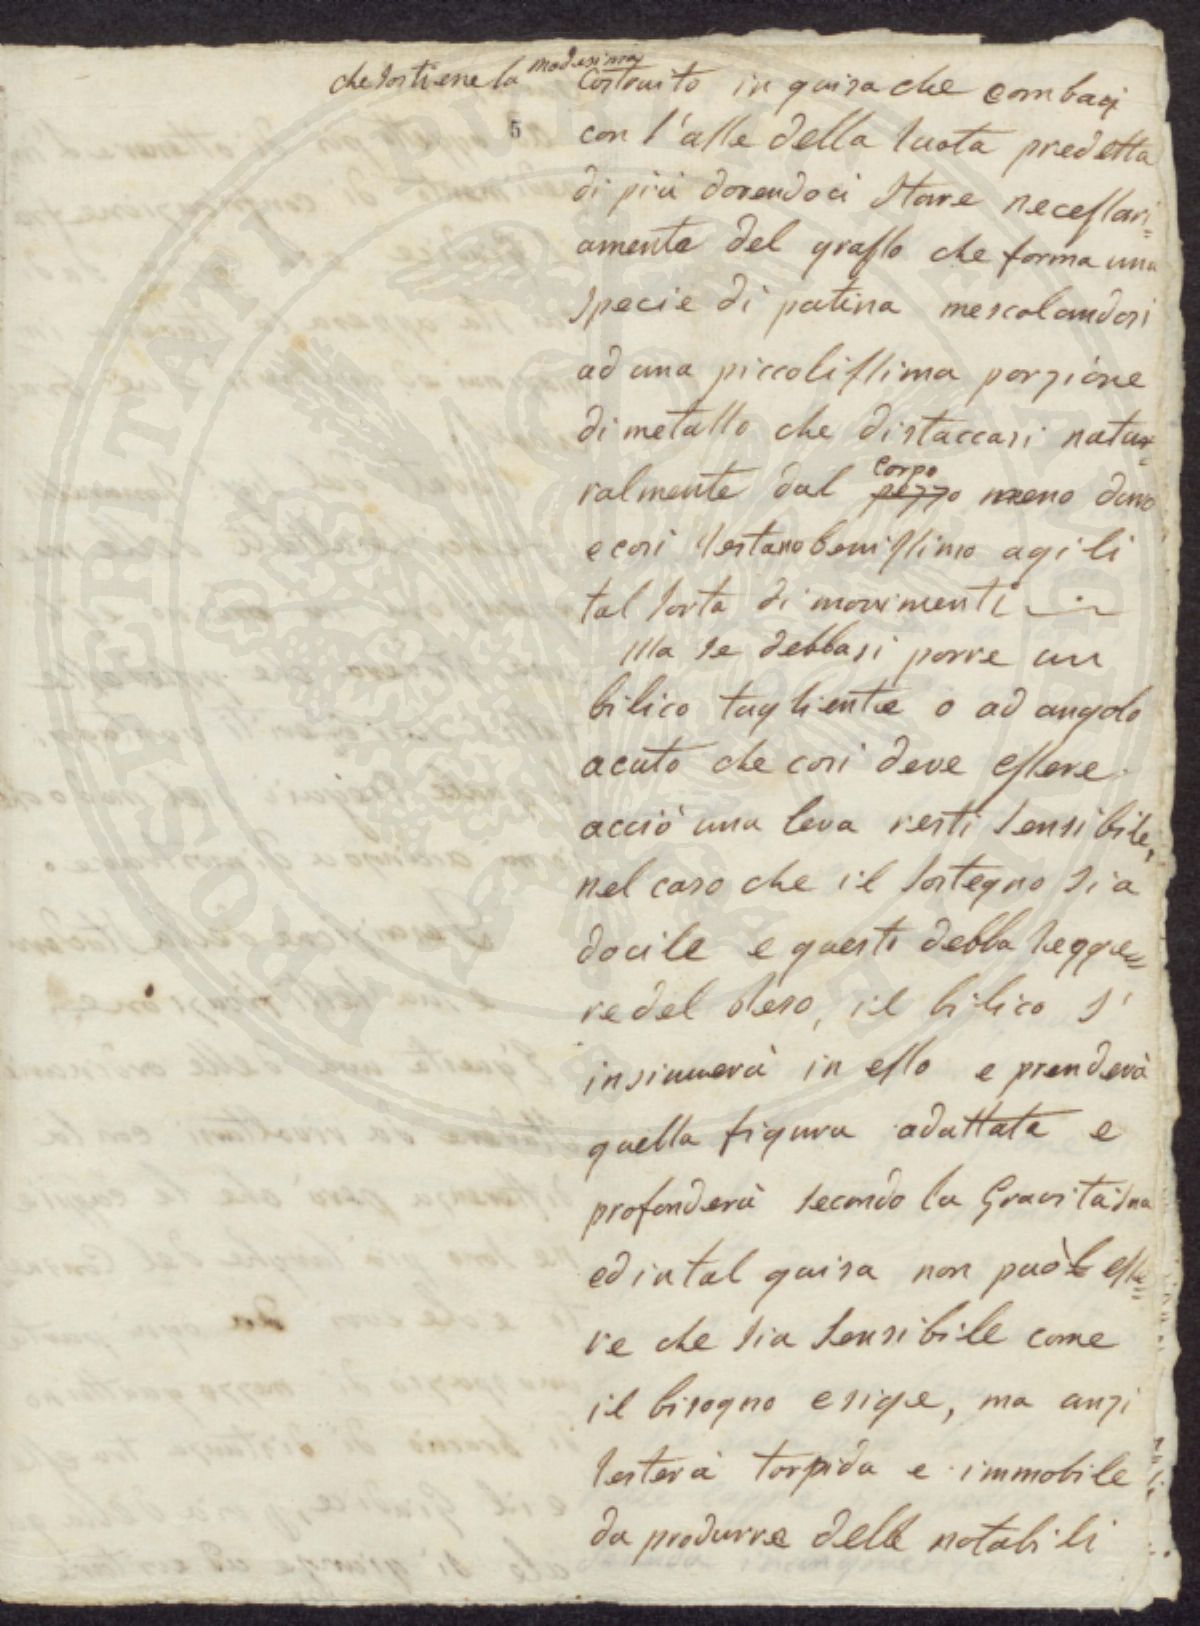 che sostiene la medesima
5
Costruito in guisa che combagi
con l'asse della ruota predetta
di più dovendoci stare necessari=
amente del grasso che forma una
specie di patina mescolandosi
ad una piccolissima porzione
di metallo che distaccasi natu=
ralmente dal pezzo corpo meno duro
e così restano benissimo agili
tal sorta di movimenti
Ma se debbasi porre un
bilico tagliente o ad angolo
acuto che così deve essere
acciò una leva resti sensibile,
nel caso che il sostegno sia
docile e questi debba regge=
re del peso, il bilico s'
insinuerà in esso e prenderà
quella figura adattata e
profonderà secondo la Gravità sua
ed in tal guisa non può esse=
re che sia sensibile come
il bisogno esige, ma anzi
resterà torpida e immobile
da produrre delle notabili
PROSPERITATI